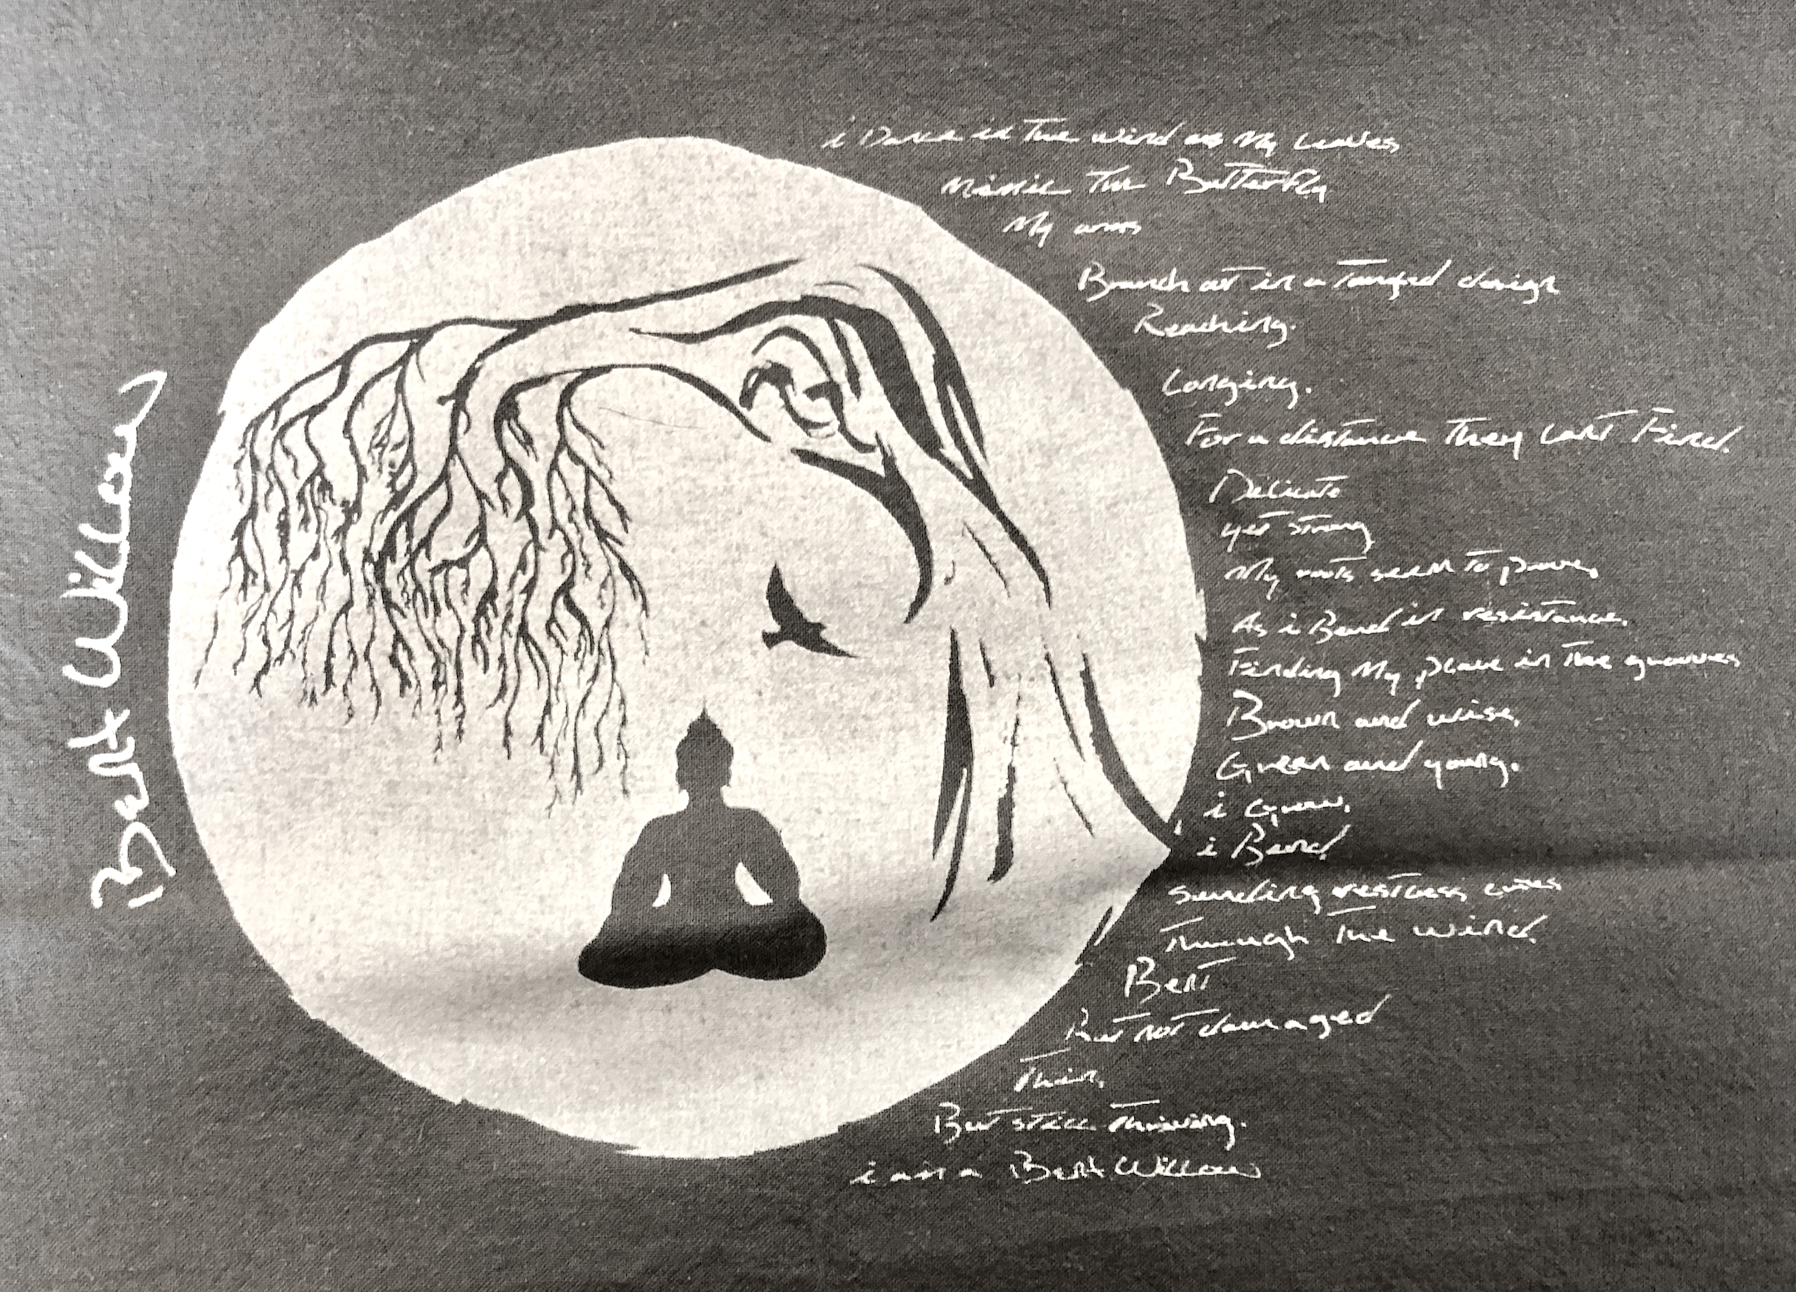 Bent Willow
i Dance in The wind as My Leaves
Mimic The Butterfly
My arms
Branch out in a Tangled design
Reaching.
Longing.
For a distance They Can't Find.
Delicate
yet strong
My roots seem to prove,
As i Bend in resistance,
Finding My place in The grooves
Brown and wise,
Green and young.
i Grow,
i Bend
sending restless cries
Through The wind.
Bent
But not damaged
Thin,
But still Thriving.
i am a Bent Willow